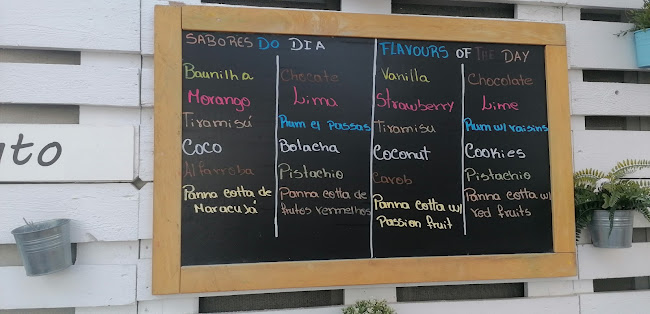 SABORES DO DIA
Baunilha
Morango
Tiramisú
Coco
Alfarroba
Panna cotta de
Maracujá
Chocate
Lima
Rum c/ passas
Bolacha
Pistachio
Panna cotta de
frutos vermelhos
FLAVOURS OF THE DAY
Vanilla
Strawberry
Tiramisu
Coconut
Carob
Panna cotta w/
Passion fruit
Chocolate
Lime
Rum w/ raisins
Cookies
Pistachio
Panna cotta w/
red fruits